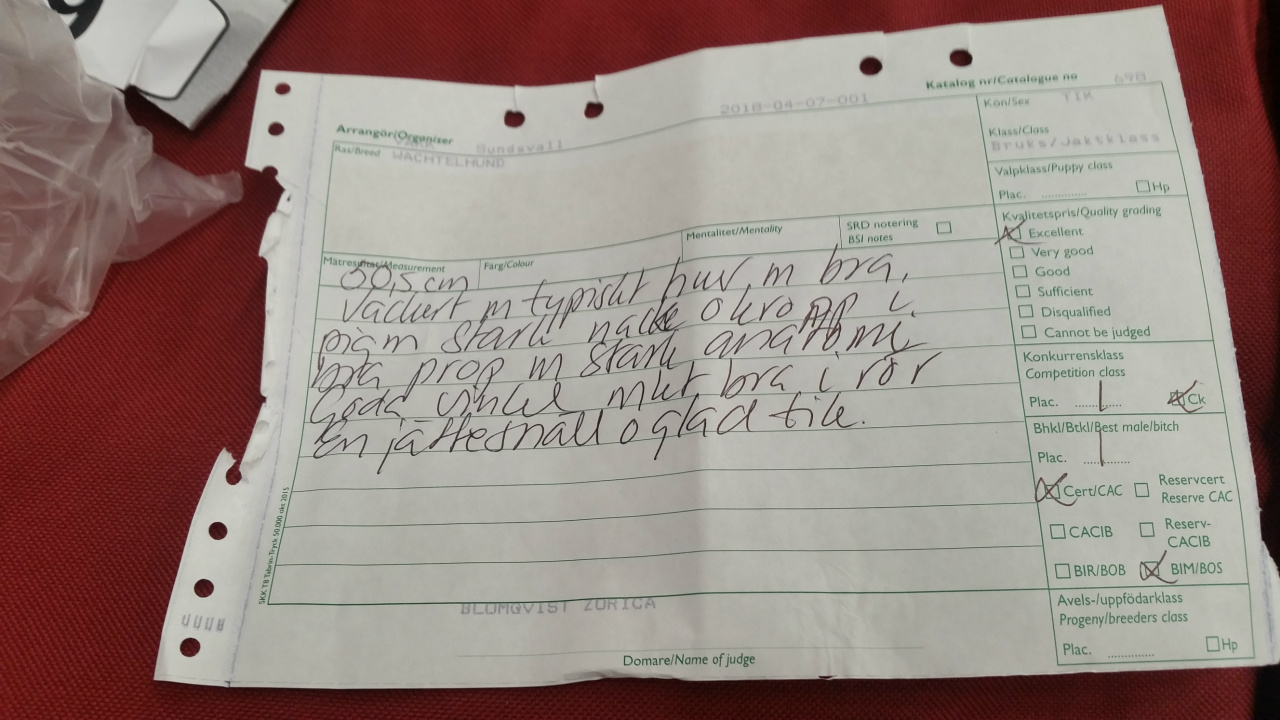 9
Katalog nr/Catalogue no 698
2018-04-07-001
Kön/Sex TIK
Arrangör/Organiser Sundsvall
Klass/Class
Bruks/Jaktklass
Ras/Breed WACHTELHUND
Valpklass/Puppy class
Plac. ............. Hp
Mentalitet/Mentality
SRD notering
BSI notes
Kvalitetspris/Quality grading
Excellent
Very good
Good
Sufficient
Disqualified
Cannot be judged
Mätresultat/Measurement
Färg/Colour
50,5 cm
Vackert m typiskt huv m bra,
pigm stark nacke o kropp i
bra prop m stark anatomi,
Goda vinkel mkt bra i rör
En jättesnäll o glad tik.
Konkurrensklass
Competition class
Plac. 1 Ck
Bhkl/Btkl/Best male/bitch
Plac. 1
Cert/CAC
Reservcert
Reserve CAC
CACIB
Reserv-
CACIB
BIR/BOB
BIM/BOS
Avels-/uppfödarklass
Progeny/breeders class
Plac. ............. Hp
BLOMQVIST ZORICA
Domare/Name of judge
SKK T8 Tabrin-Tryck 50.000 okt 2015